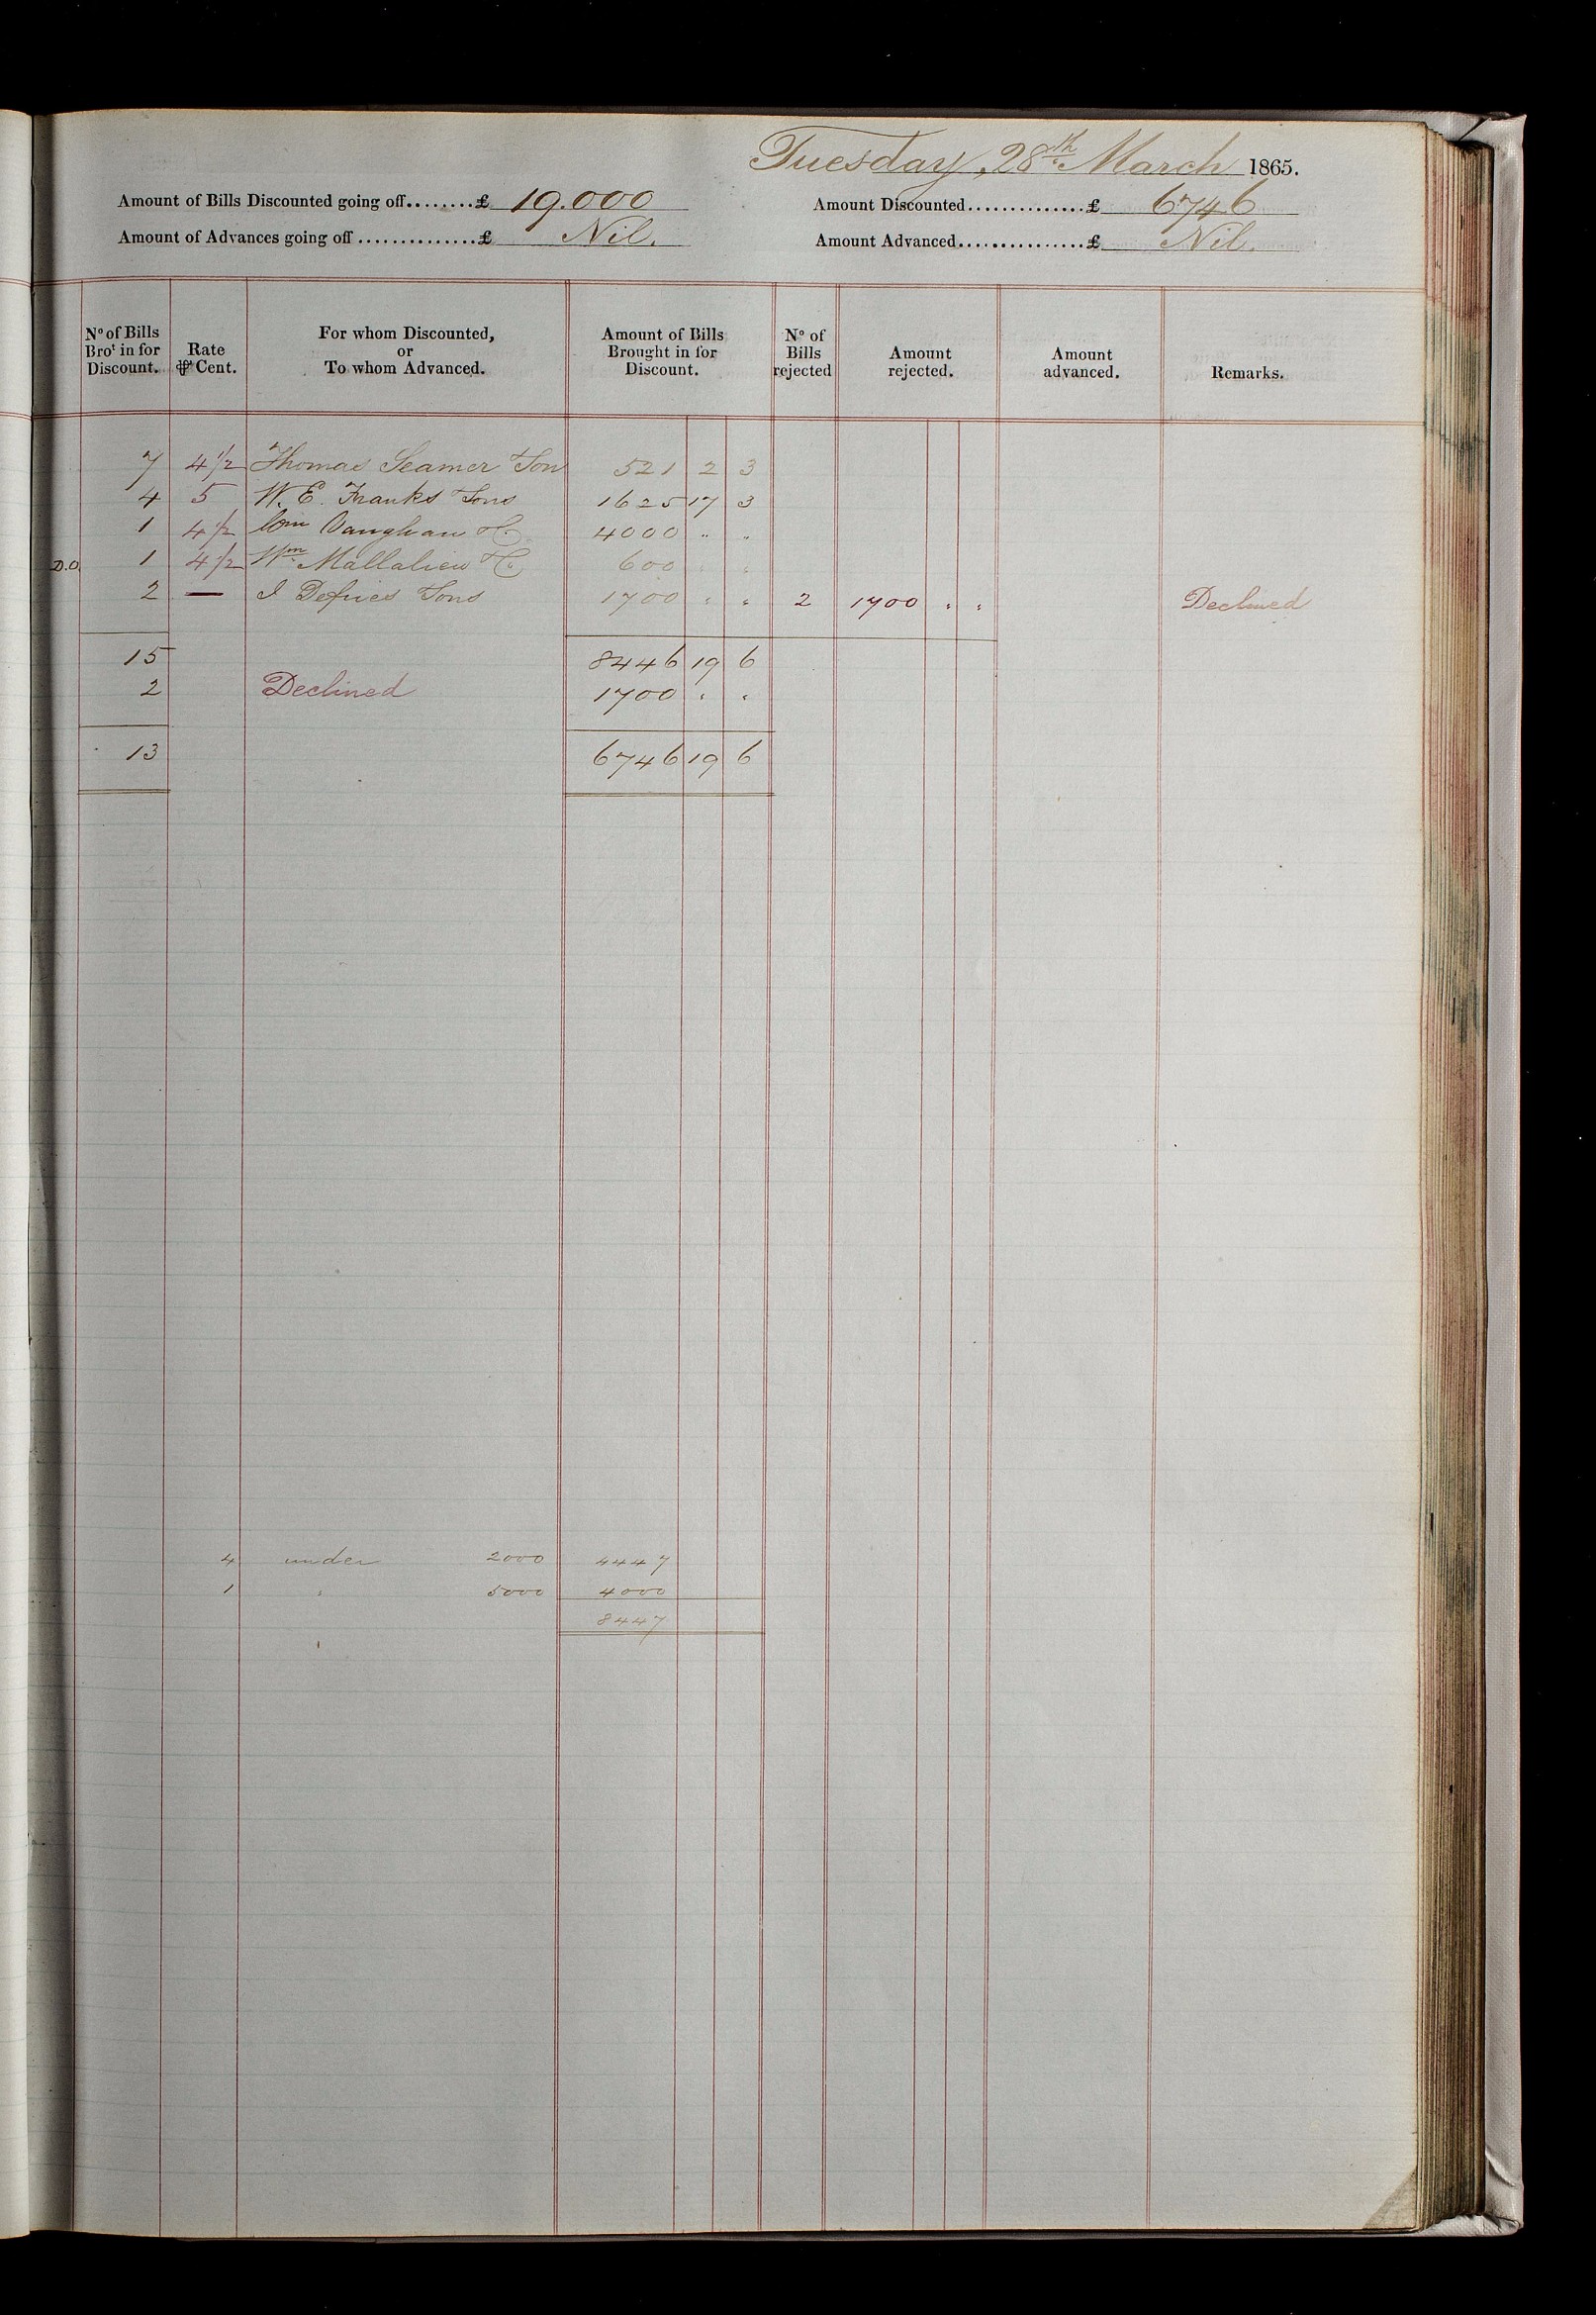 Tuesday, 28th March 1865.
Amount of Bills Discounted going off........£ 19.000 Amount Discounted..............£ 6746
Amount of Advances going off..............£ Nil. Amount Advanced...............£ Nil.
No of Bills Brot in for Discount. Rate ⅌ Cent. For whom Discounted, or To whom Advanced. Amount of Bills Brought in for Discount. No of Bills rejected Amount rejected. Amount advanced. Remarks.
7 4½ Thomas Seamer Son 521 2 3
4 5 W. E. Franks Sons 1625 17 3
1 4½ Vaughan & Co. 4000 " "
D.O. 1 4½ Wm Mallalieu & Co. 600 " "
2 — Defries Sons 1700 " " 2 1700 " " Declined
15 8446 19 6
2 Declined 1700 " "
13 6746 19 6
4 under 2000 4447
1 " 5000 4000
8447